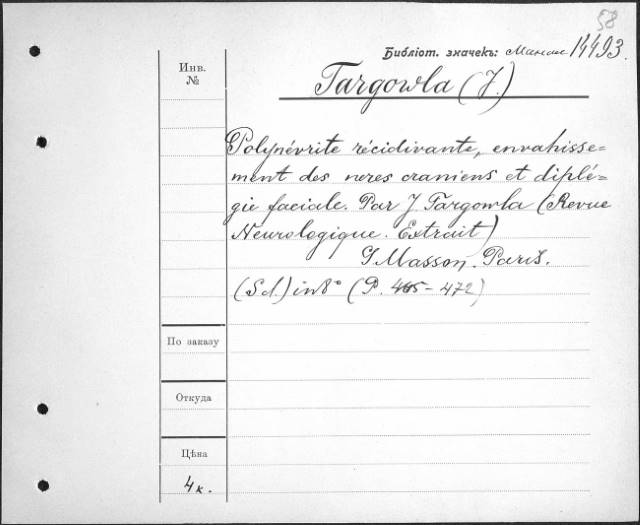 58
Библіот. значекъ: 14493.
Инв.
№
Targowla (J.)
Polynévrite récidivante, envahisse=
ment des neres craniens et diplé=
gie faciale. Par J. Targowla (Revue
Neurologique. Extrait)
G. Masson. Paris.
(S d.) in 8° (P. 465-472)
По заказу
Откуда
Цѣна
4 к.